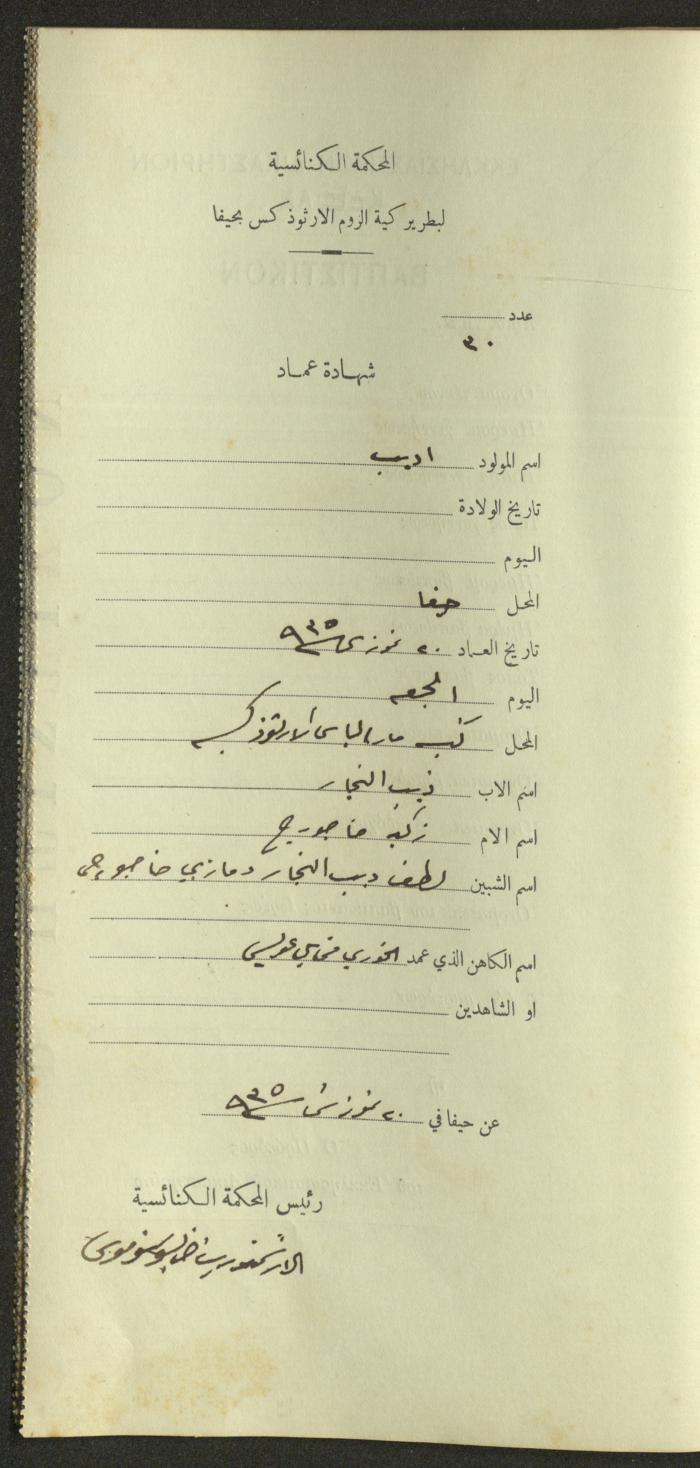 المحكمة الكنائسية
لبطريركية الروم الارثوذكس بحيفا
عدد
٣٠
شهادة عماد
اسم المولود اديب
تاريخ الولادة
اليوم
المحل حيفا
تاريخ العماد ٢٠ تموز سنة ٩٣٥
اليوم الجمعه
المحل كنيسة مار الياس الارثوذكسيه
اسم الاب ذيب النجار
اسم الام زكيه حنا جورج
اسم الشبين لطف ديب النجار و حنا
اسم الكاهن الذي عمد الخوري
او الشاهدين
عن حيفا في ٢٠ تموز سنة ٩٣٥
رئيس المحكمة الكنائسية
الارشمندريت